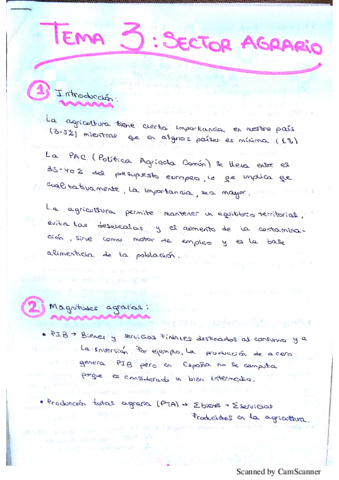 TEMA 3: SECTOR AGRARIO
1 Introducción:
La agricultura tiene cierta importancia, en nuestro país
(3-5%) mientras que en algnos países es mínima (1%)
La PAC (Política Agrícola Común) se lleva entre el
35-40% del presupuesto europeo, lo que implica que
cualitativamente, la importancia, sea mayor.
La agricultura permite mantener un equilibrio territorial,
evita las desescalas y el aumento de la contamina-
ción, sirve como motor de empleo y es la base
alimenticia de la población.
2 Magnitudes agrarias:
• PIB → Bienes y servicios finales destinados al consumo y a
la inversión. Por ejemplo, la producción de acero
genera PIB pero en España no se computa
porque es considerado un bien intermedio.
• Producción total agraria (PTA) → Σbienes + Σservicios
Producidos en la agricultura.
Scanned by CamScanner